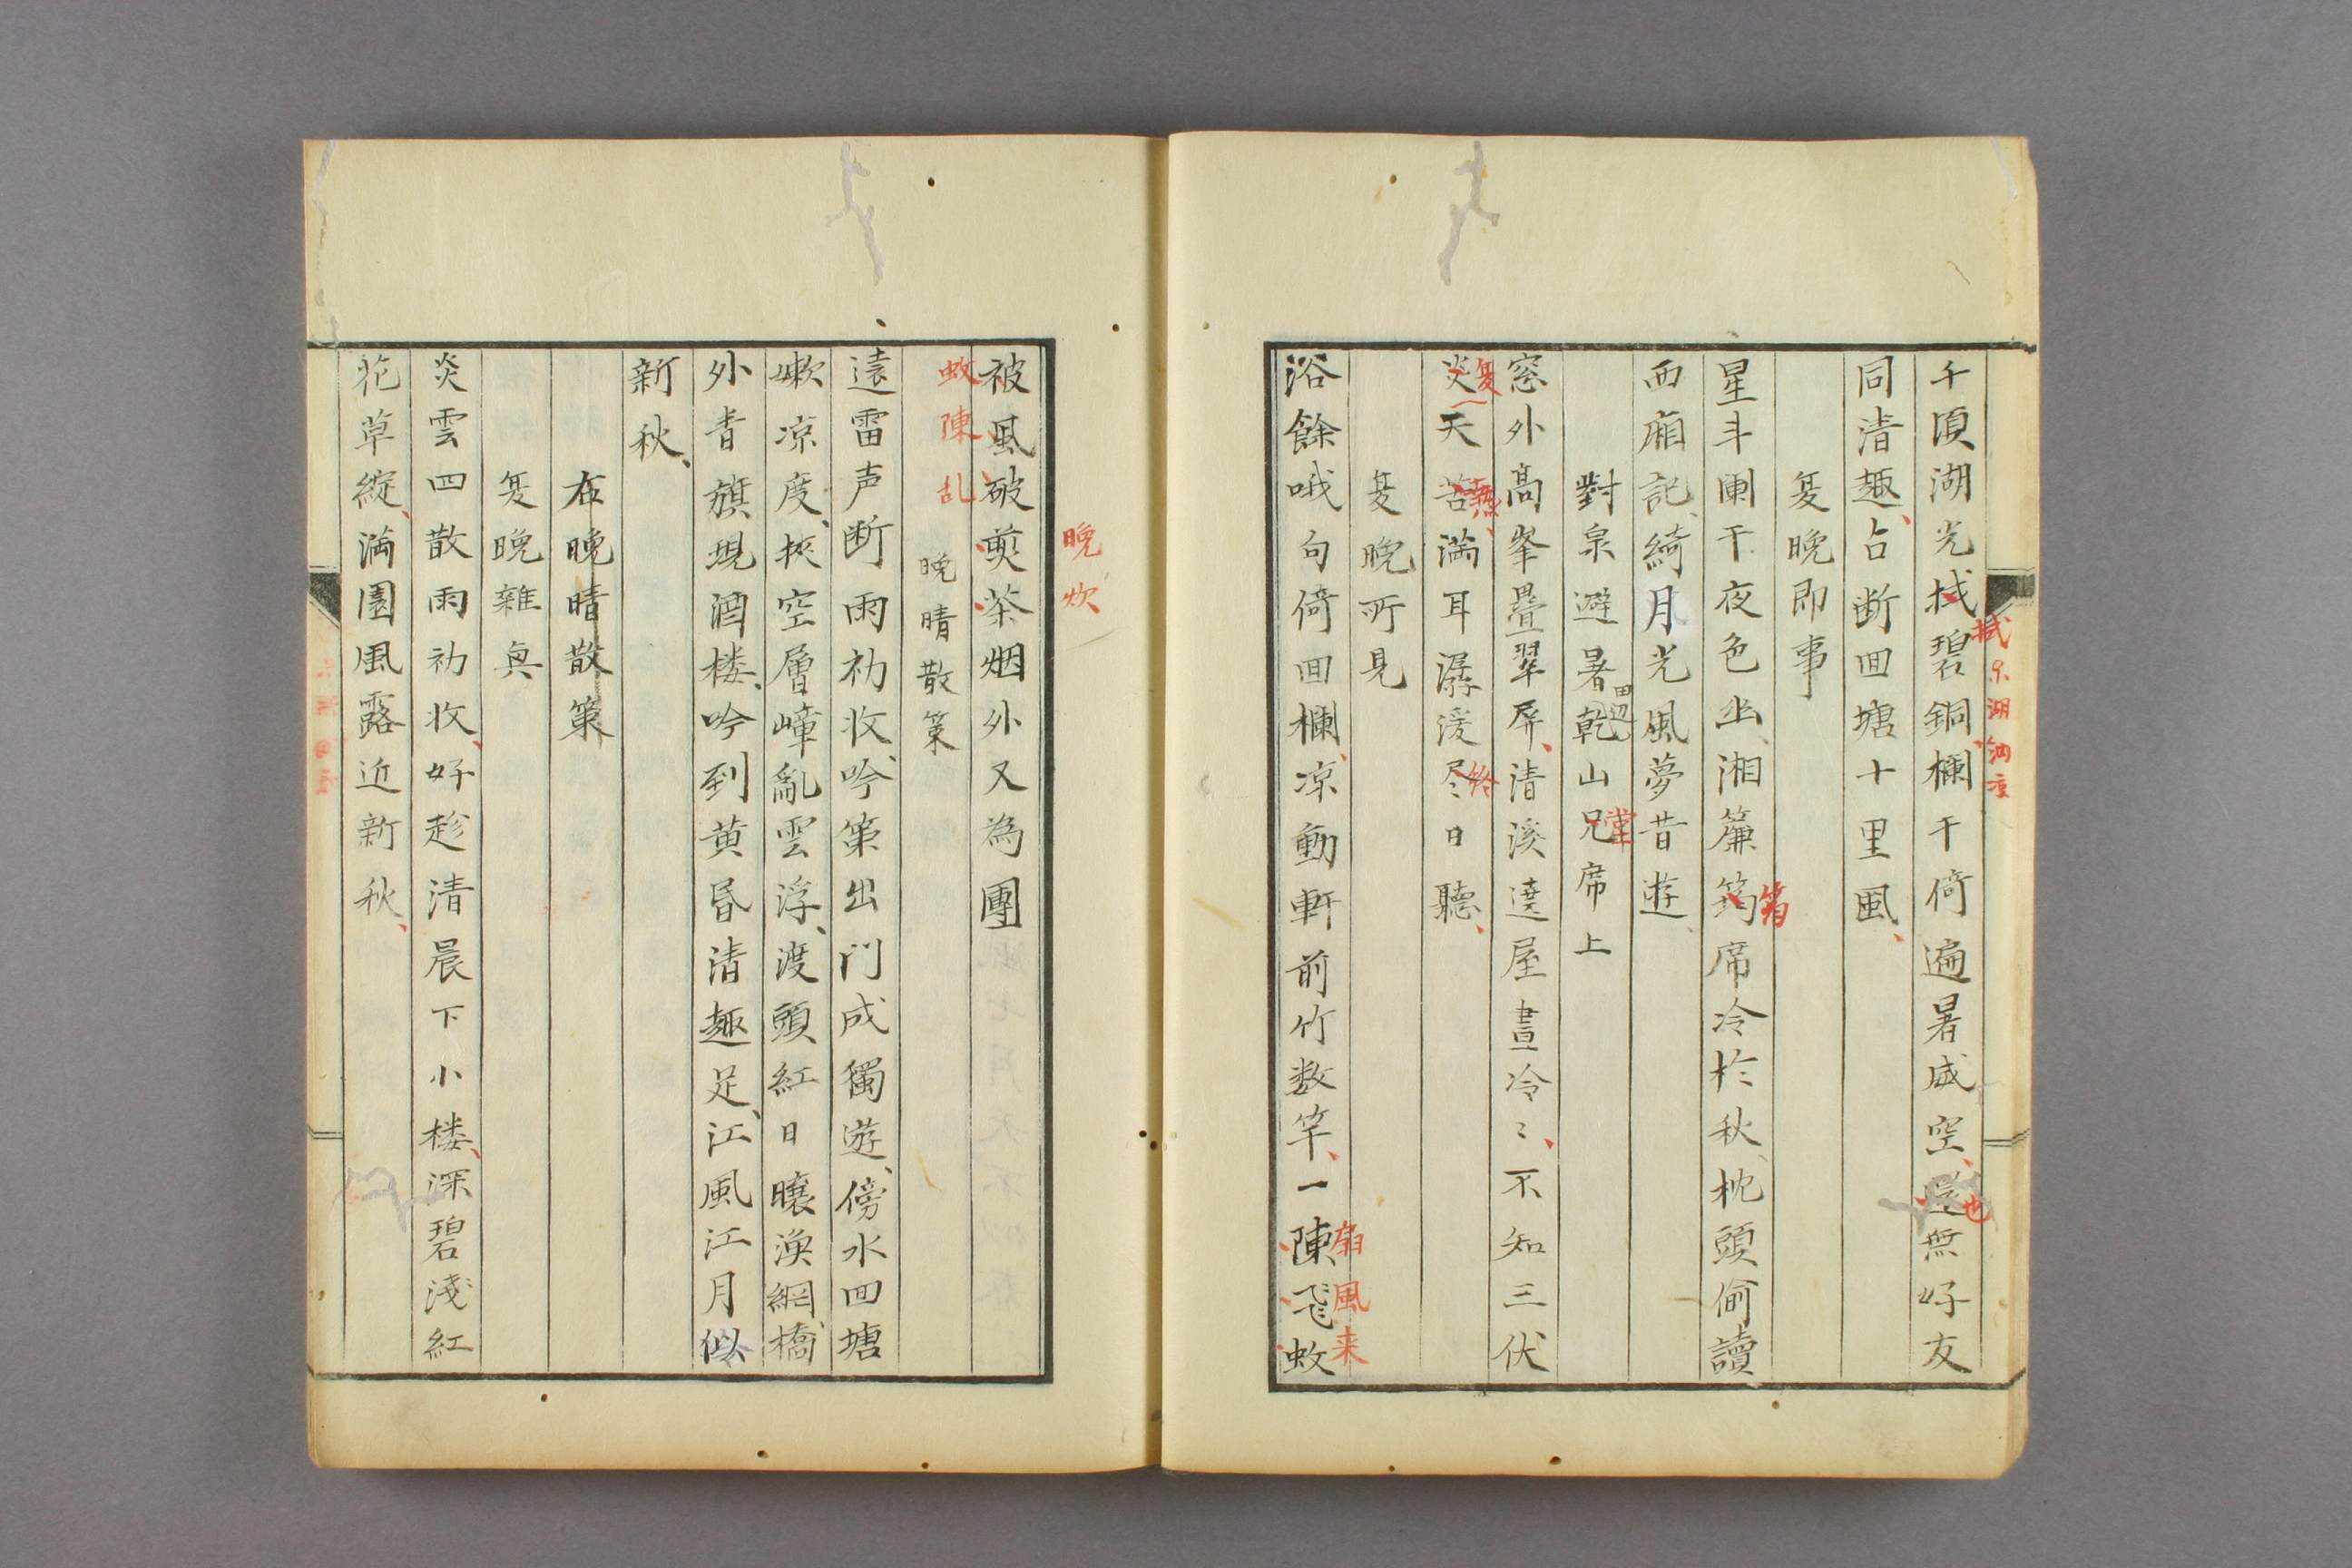 千頃湖光拭碧銅欄干倚遍暑威空無好友
拭
ハ湖
也
同清趣占断回塘十里風
夏晚即事
星斗闌干夜色幽湘簾筠席冷於秋枕頭偷讀
箔
西廂記綺月光風夢昔遊
對泉避暑乾山兄席上
田辺
堂
窓外高峯疊翠屏清溪遶屋晝冷〻不知三伏
炎天苦滿耳潺湲尽日聽
夏
熱
終
夏晚所見
浴餘哦句倚回欄凉動軒前竹数竿一陳飛蚊
扇風来
被風破煎茶烟外又為團
晚炊
蚊陳乱
晚晴散策
遠雷声断雨初收吟策出門成獨遊傍水回塘
嫩凉度挾空層嶂亂雲浮渡頭紅日曬漁網橋
外青旗現酒楼吟到黄昏清趣足江風江月似
新秋
右晚晴散策
夏晚雜興
炎雲四散雨初收好趁清晨下小楼深碧淺紅
花草綻滿園風露近新秋